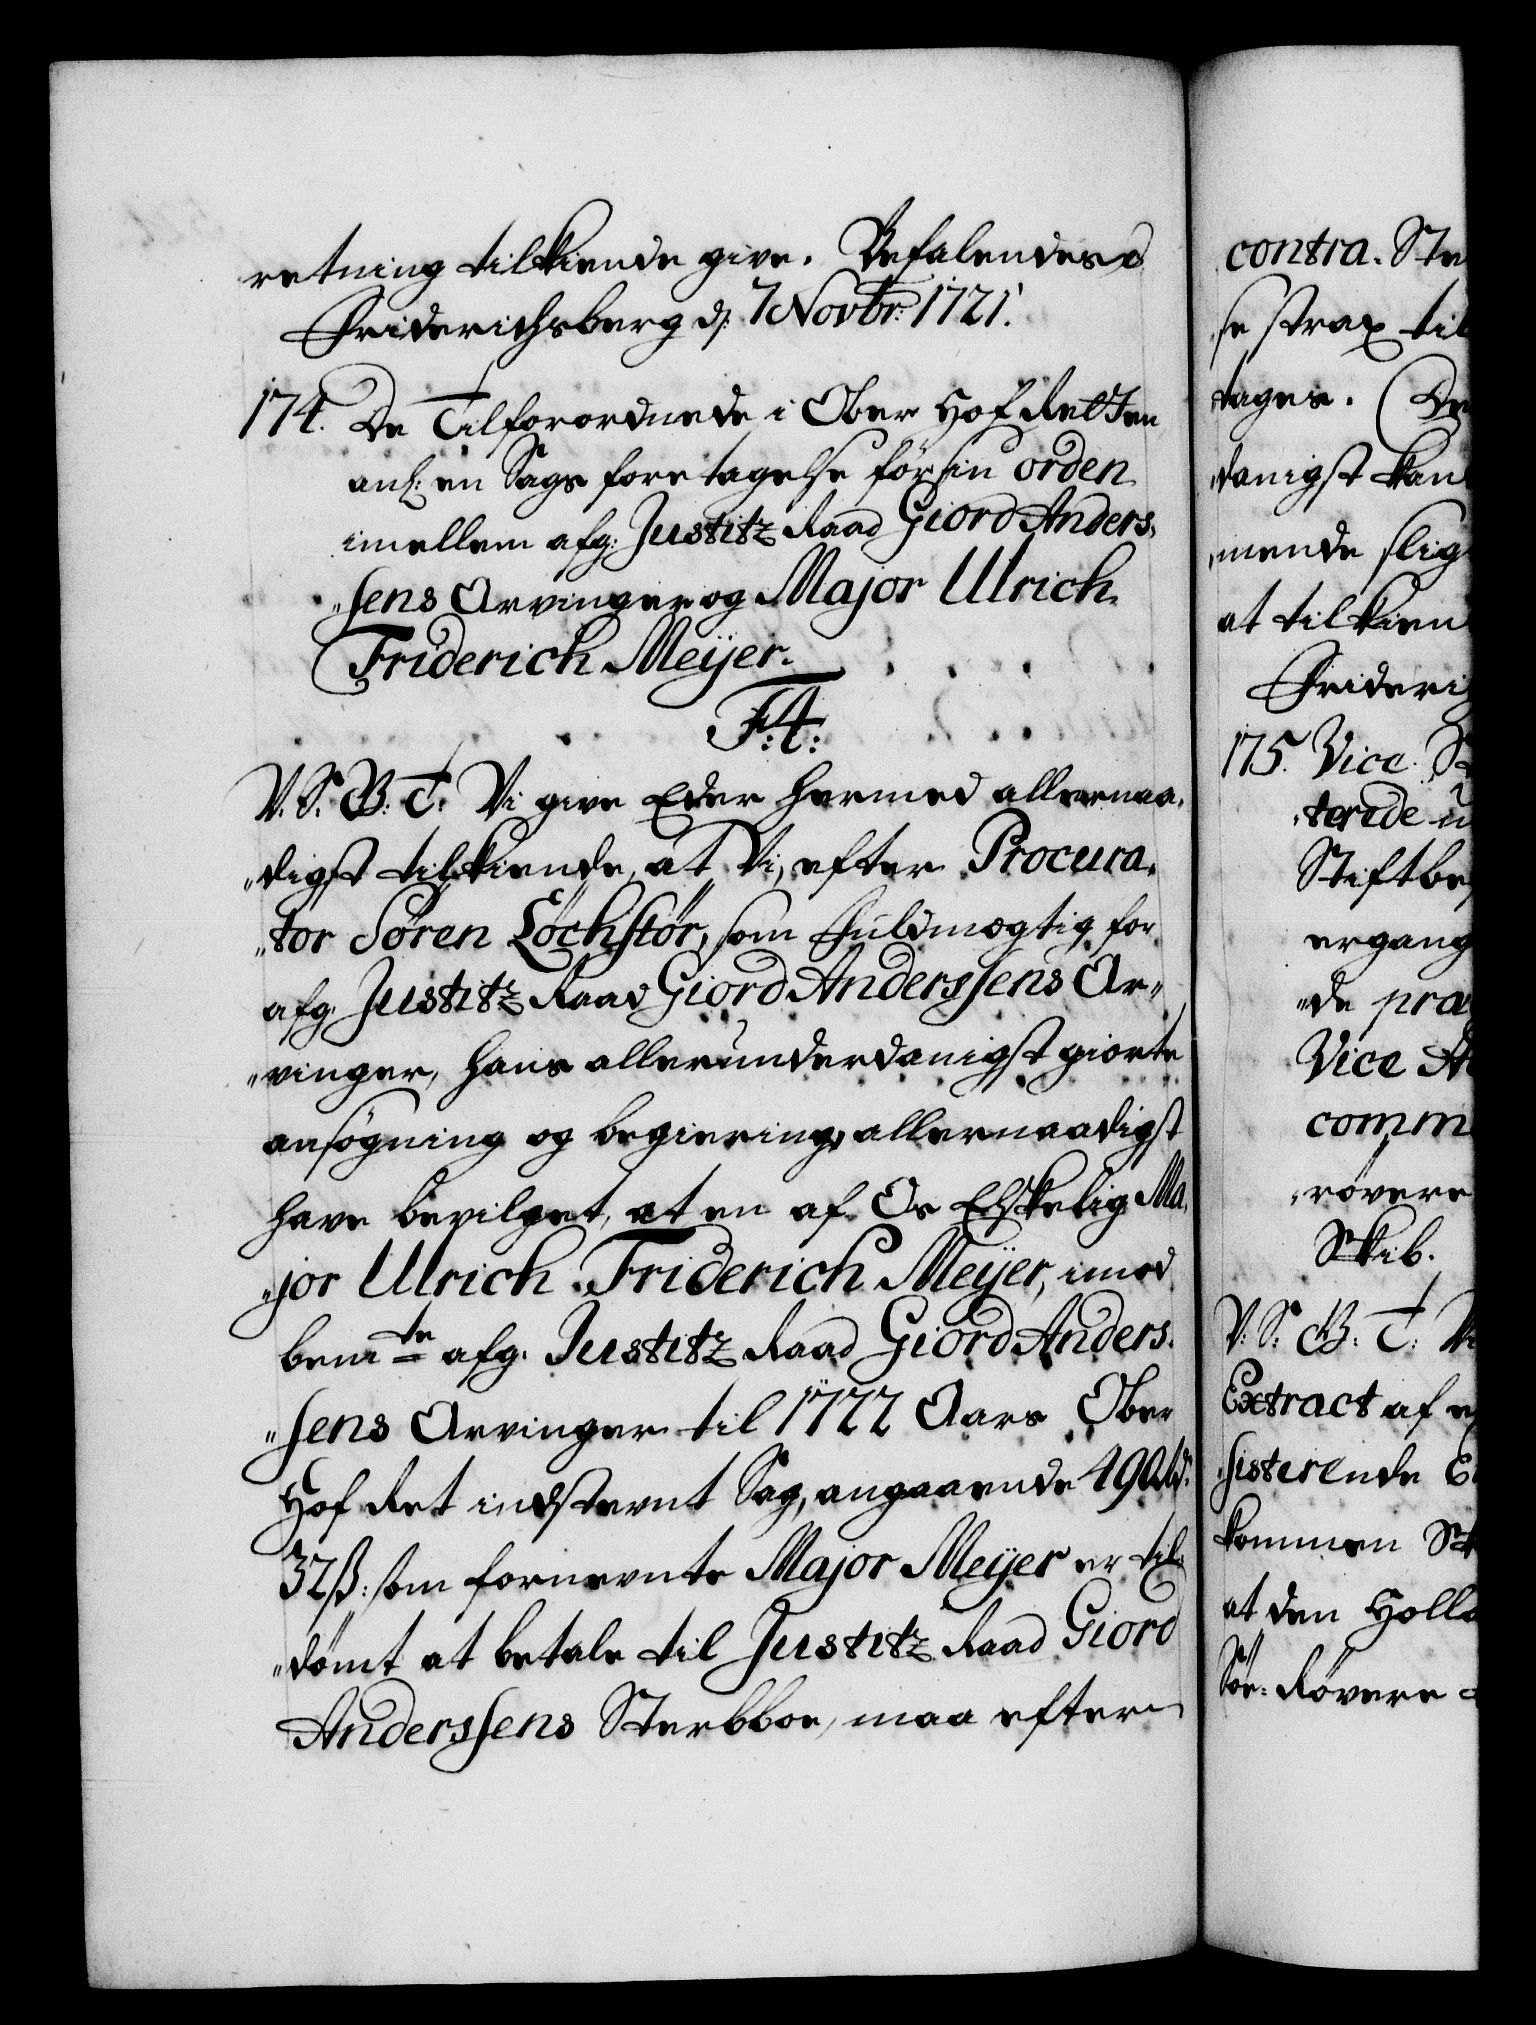 retning tilkiende give. Befalendes
Friderichsberg d: 7 Novbr: 1721.
174. De Tilforordnede i Ober Hof Retten
anl: en Sags foretagelse før sin orden
imellem afg: Justitz Raad Giord Anders,
„sens Arvinger og Major Ulrich
Friderich Meÿer.
F:4:
V. S. B: T: Vi give Eder hermed allernaa,
„digst tilkiende, at Vi, efter Procura,
„tor Søren Løchstør, som Fuldmægtig for
afg: Justitz Raad Giord Anderssens Ar„
„vinger, hans allerunderdanigst giorte
ansøgning og begiering, allernaadigst
have bevilget, at en af Os Elskelig Ma,
„jor Ulrich Friderich Meÿer, imod
bemte afg. Justitz Raad Giord Anders.
„sens Arvinger til 1722 Aars Ober
Hof Ret indstevnt Sag, angaaende 490 Rd:
32ß: som fornevnte Major Meÿer er til
„dømt at betale til Justitz Raad Giord
Anderssens Sterbboe, maa efter
contra. Ste
se strax til
tages. De
„danigst kan
„mende slig
at tilkien
Frideri
175. Vice. St
„terede u
Stiftbe
ergang
„de præ
Vice A
comm
„røvere
Skib.
V: S: B: T: Vi
Extract af e
„sisterende E
kommen St
at den Holla
Søe: Røvere